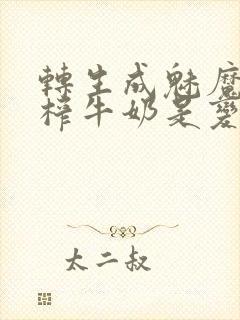 轉生成魅魔
榨牛奶是愛
太二叔